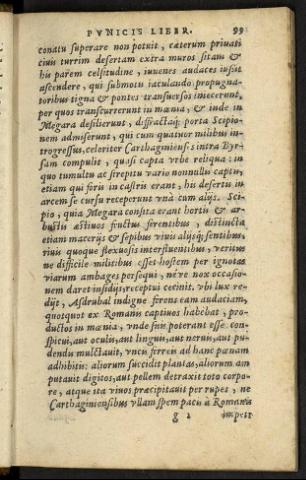 PVNICIS LIBER. 99
conatu superare non potuit, cæterum priuati
ciuis turrim desertam extra muros sitam &
his parem celsitudine, iuuenes audaces iussit
ascendere, qui submotis iaculando propugna-
toribus tigna & pontes transuersos iniecerunt,
per quos transcurrerunt in mœnia, & inde in
Megara desilierunt, diffractaq; porta Scipio-
nem admiserunt, qui cum quatuor milibus in-
trogressus, celeriter Carthaginiensˢ intra Byr-
sam compulit, quasi capta vrbe reliqua: in
quo tumultu ac strepitu vario nonnullis captis,
etiam qui foris in castris erant, his desertis in
arcem se cursu receperunt vnà cum alijs. Sci-
pio, quia Megara consita erant hortis & ar-
bustis æstiuos fructus ferentibus, distincta
etiam macerijs & sepibus viuis alijsq; sentibus,
riuis quoque flexuosis interfluentibus, veritus
ne difficile militibus esset hostem per ignotas
viarum ambages persequi, néve nox occasio-
nem daret insidijs, receptui cecinit. vbi lux re-
dijt, Asdrubal indigne ferens eam audaciam,
quotquot ex Romanis captiuos habebat, pro-
ductos in mœnia, vnde suis poterant esse con-
spicui, aut oculis, aut linguis, aut neruis, aut pu-
dendis mulctauit, vncis ferreis ad hanc pœnam
adhibitis: aliorum succidit plantas, aliorum am
putauit digitos, aut pellem detraxit toto corpo-
re, atque ita viuos præcipitauit per rupes, ne
Carthaginensibus vllam spem pacis à Romanis
g 2 impetr